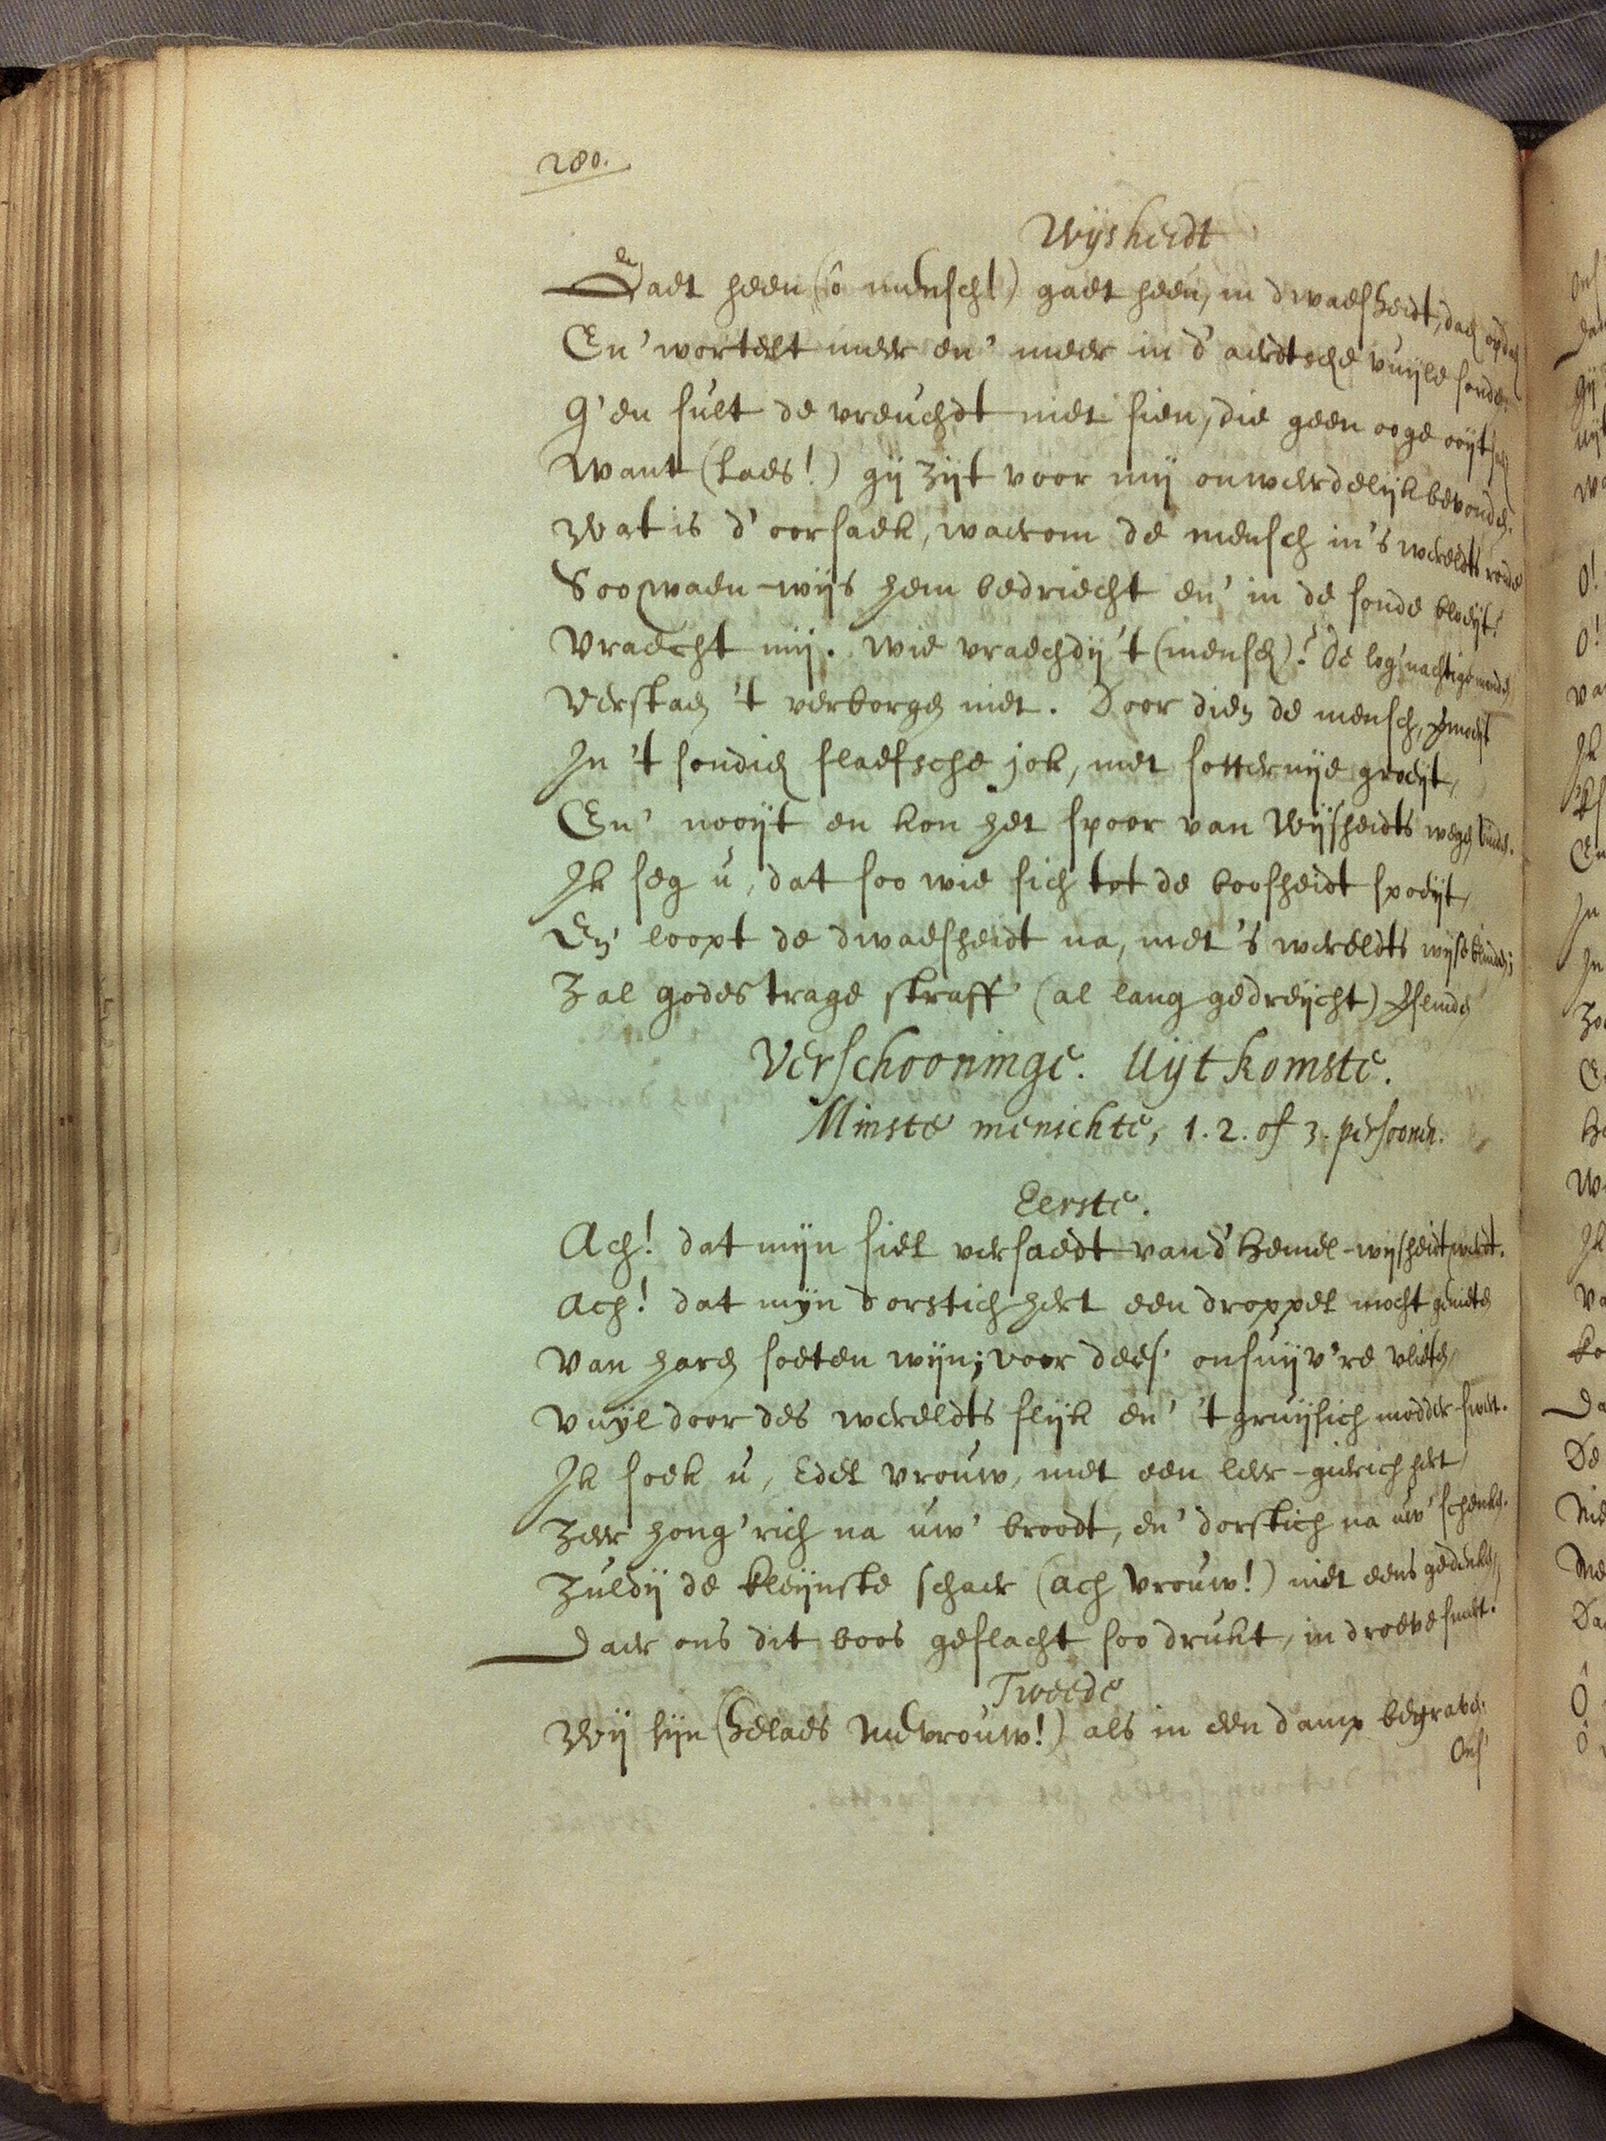 280.
Wysheidt
Gaet heen (ô mensch!) gaet heen, in dwaesheidt, daer op daer
En' wortelt meer en' meer in d'aerdtsche vuyle sonde.
G'en sult de vreuchdt niet sien, die geen ooge ooyt sach
Want (laes!) gij zijt voor mij onweerdelijk bevonde.
Wat is d'oorsaek, waerom de mensch in 's wereldts ronde
Soo waen-wijs hem bedriecht en' in de sonde bloeyt?
Vraecht mij. Wie vraechdij 't (mensch)? De log'nachtige monde
Verstaen 't verborgen niet. Door dien de mensch,
In 't sondich slaefsche jok, met sotternije groeyt,
En' nooyt en kon het spoor van Wijsheidts wegen vinden.
Ik seg u, dat soo wie sich tot de boosheidt spoeyt,
En' loopt de dwaesheidt na, met 's wereldts wijse blinden;
Zal godes trage straff' (al lang gedreycht)
Verschooninge. Uijtkomste.
Minste menichte, 1. 2. of 3. persoonen.
Eerste.
Ach! dat mijn siel versaedt van d'Hemel-wijsheidt werdt.
Ach! dat mijn dorstich hert een droppel mocht genieten
Van haren soeten wijn; voor dees' onsuijv're vlieten
Vuyl door des wereldts slijk en' 't gruijsich modder-swert.
Ik soek u, Edel vrouw, met een leer-gierich hert
Zeer hong'rich na uw' broodt, en' dorstich na uw' schenken.
Zuldij de kleijnste schaer (ach Vrouw!) niet eens gedenken,
Daer ons dit boos geslacht soo drukt, in droeve smert.
Tweede
Wij sijn (helaes Mevrouw!) als in een damp begraven.
Ons'